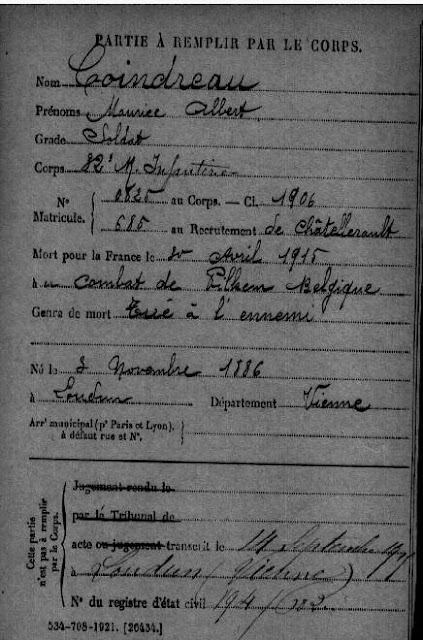 PARTIE À REMPLIR PAR LE CORPS.
Nom Coindreau
Prénoms Maurice Albert
Grade Soldat
Corps 82e R. Infanterie
N° Matricule.
0825 au Corps. — Cl. 1906
685 au Recrutement de Châtellerault
Mort pour la France le 30 Avril 1915
à combat de Pilkem Belgique
Genre de mort Tué à l'ennemi
Né le 3 Novembre 1886
à Loudun Département Vienne
Arr' municipal (p' Paris et Lyon),
à défaut rue et N°.
Cette partie
n'est pas à remplir
par le Corps.
Jugement rendu le
par le Tribunal de
acte ou jugement transcrit le 14 Septembre
à Loudun (Vienne)
N° du registre d'état civil 194/
534-708-1921. [26434.]